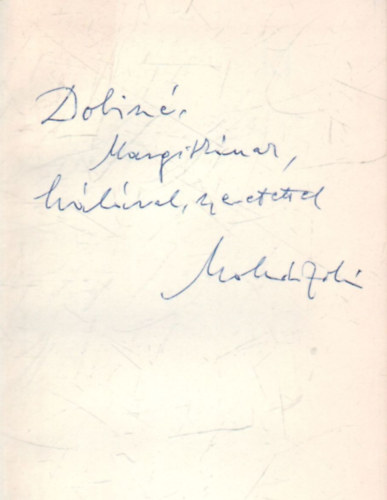 Dobisné,
Margitkának,
hálával, szeretettel
Molnár Zoltán